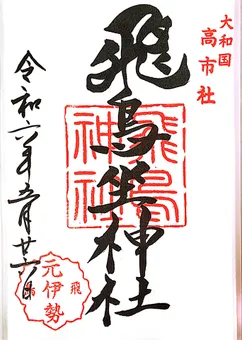 大和国
高市社
飛鳥坐神社
飛鳥
神社
令和六年五月廿六日
元伊勢
飛鳥